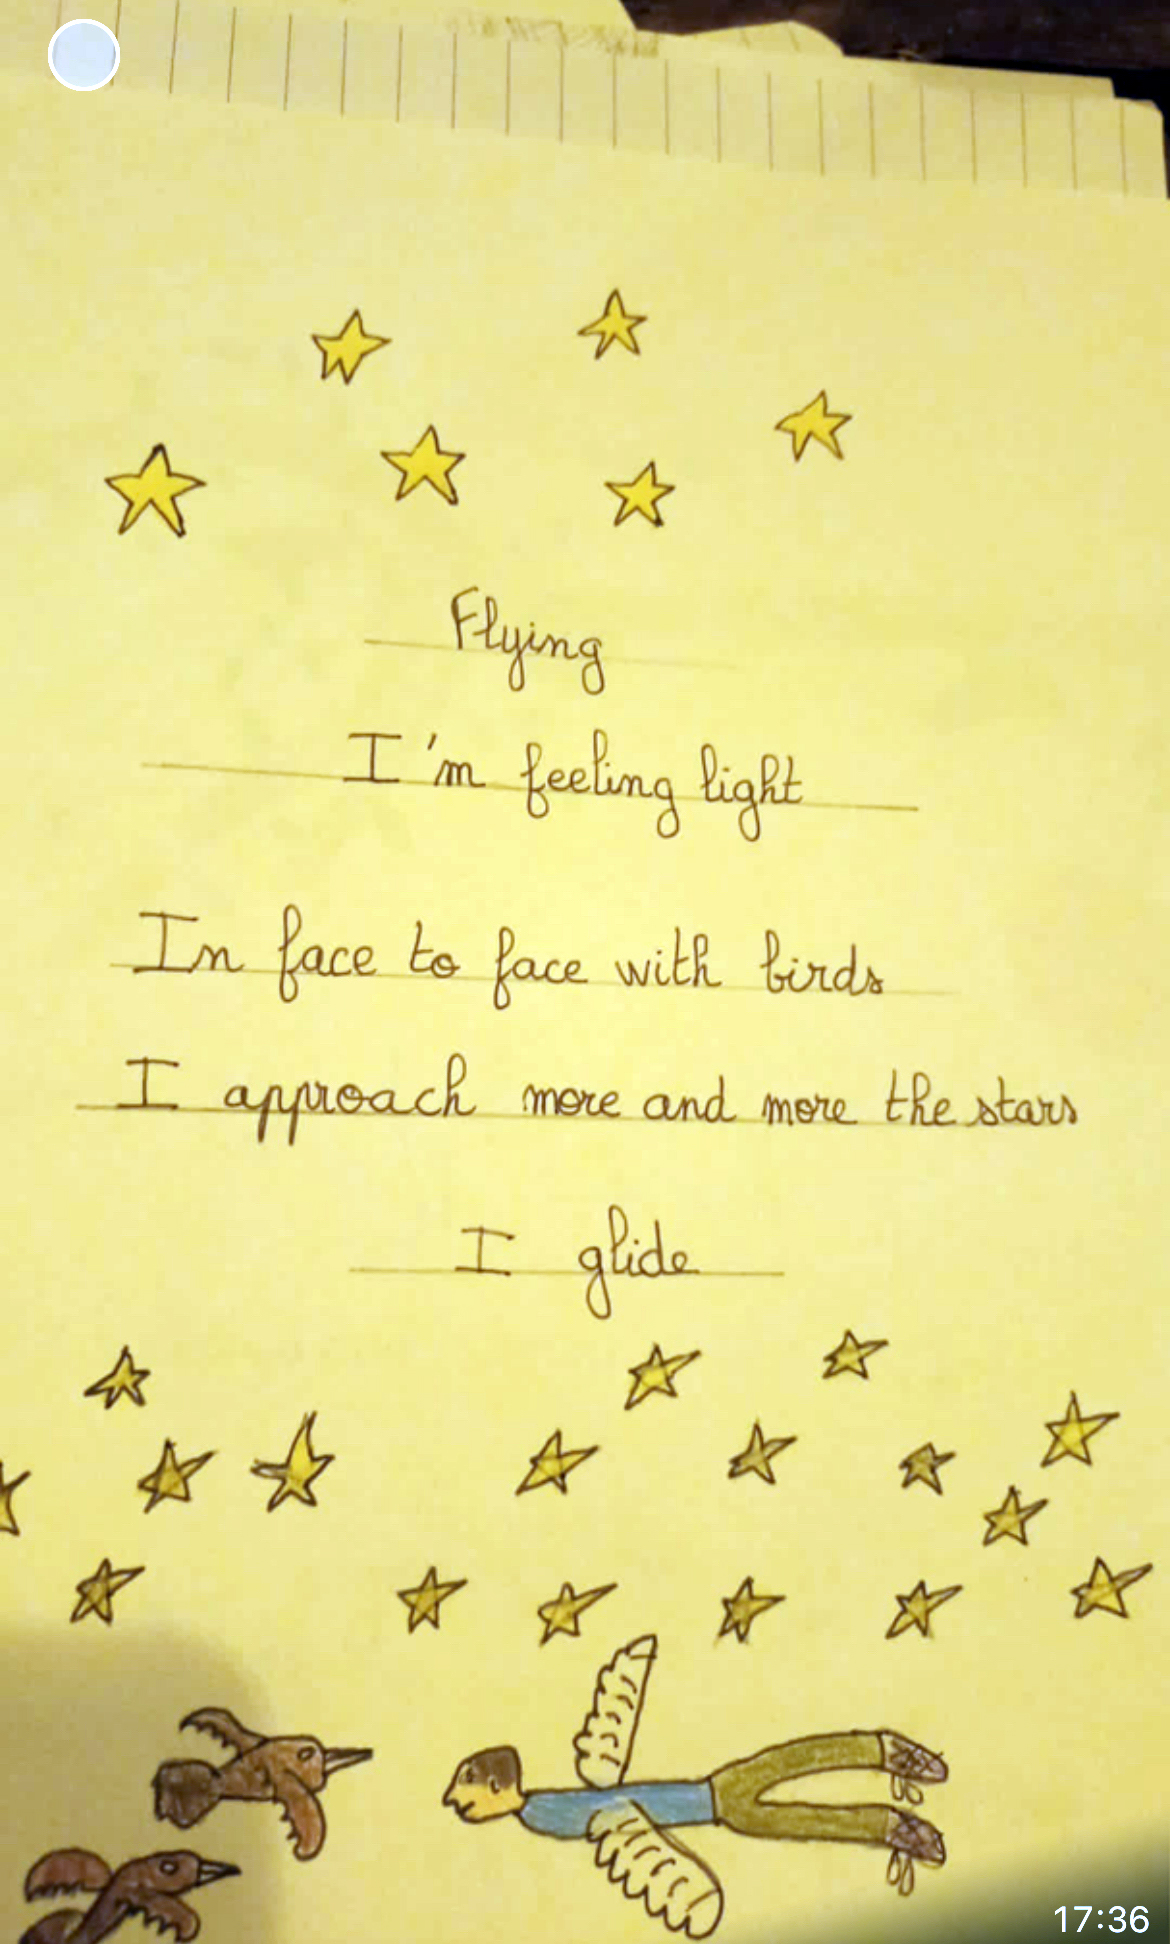 Flying
I'm feeling light
In face to face with birds
I approach more and more the stars
I glide
17:36